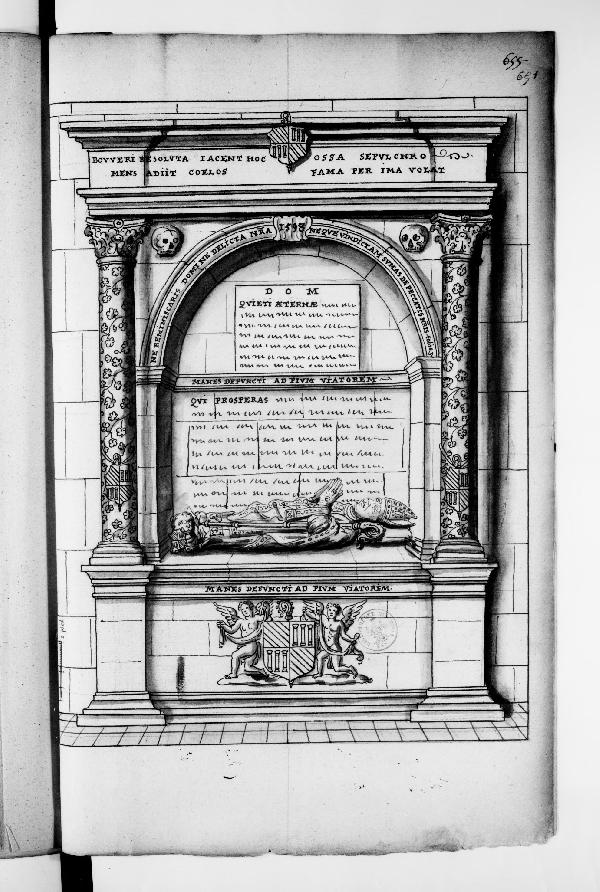 655
651
BOVVERI RESOLUTA IACENT HOC OSSA SEPULCHRO
MENS ADIIT COELOS FAMA PER IMA VOLAT
1598
NE REMINISCARIS DOMINE DELICTA NRA NEQUE VINDICTAM SUMAS DE PECCATIS
D O M
QUIETI ÆTERNÆ
MANES DEFUNCTI AD PIUM VIATOREM
QUI PROSPERAS
MANES DEFUNCTI AD PIUM VIATOREM.